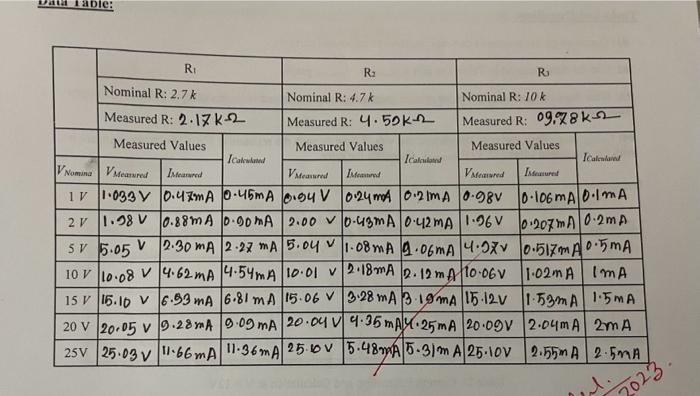 Data Table:
R1 R2 R3
Nominal R: 2.7 k Nominal R: 4.7 k Nominal R: 10 k
Measured R: 2.17 kΩ Measured R: 4.50 kΩ Measured R: 09.78 kΩ
Measured Values Measured Values Measured Values
ICalculated ICalculated ICalculated
VNomina VMeasured IMeasured VMeasured IMeasured VMeasured IMeasured
1 V 1.033V 0.47mA 0.45mA 0.94 V 0.24mA 0.21mA 0.98V 0.106mA 0.1mA
2 V 1.98 V 0.88mA 0.90mA 2.00 V 0.43mA 0.42mA 1.96 V 0.207mA 0.2mA
5 V 5.05 V 2.30 mA 2.27 mA 5.04 V 1.08mA 1.06mA 4.97V 0.517mA 0.5mA
10 V 10.08 V 4.62mA 4.54mA 10.01 V 2.18mA 2.12mA 10.06V 1.02mA 1mA
15 V 15.10 V 6.93mA 6.81mA 15.06 V 3.28mA 3.19mA 15.12V 1.53mA 1.5mA
20 V 20.05 V 9.28mA 9.09mA 20.04V 4.35mA 4.25mA 20.09V 2.04mA 2mA
25V 25.03 V 11.66mA 11.36mA 25.10V 5.48mA 5.31mA 25.10V 2.55mA 2.5mA
2023.